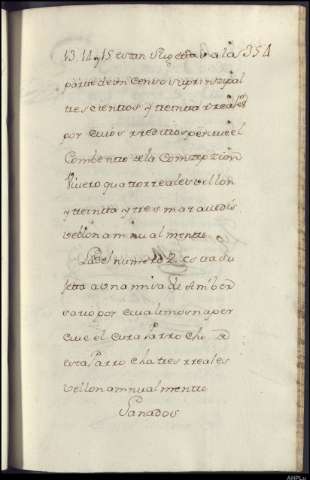 13. 14 y 15 estan sugetas a las 354
parte de un Censo su prinzipal
tres cientos y treinta rreales
por cuios rreditos percive el
Combento de la Comsepzion
Vivero quatro rreales vellon
y treinta y tres maravedis
vellon annualmente
La del numero 2 esta su
jeta a una misa de Aniber
sario por cuia limosna per
cive el Cura Parrocho de
esta Parrocha tres rreales
vellon annualmente
Ganados
AHPLu